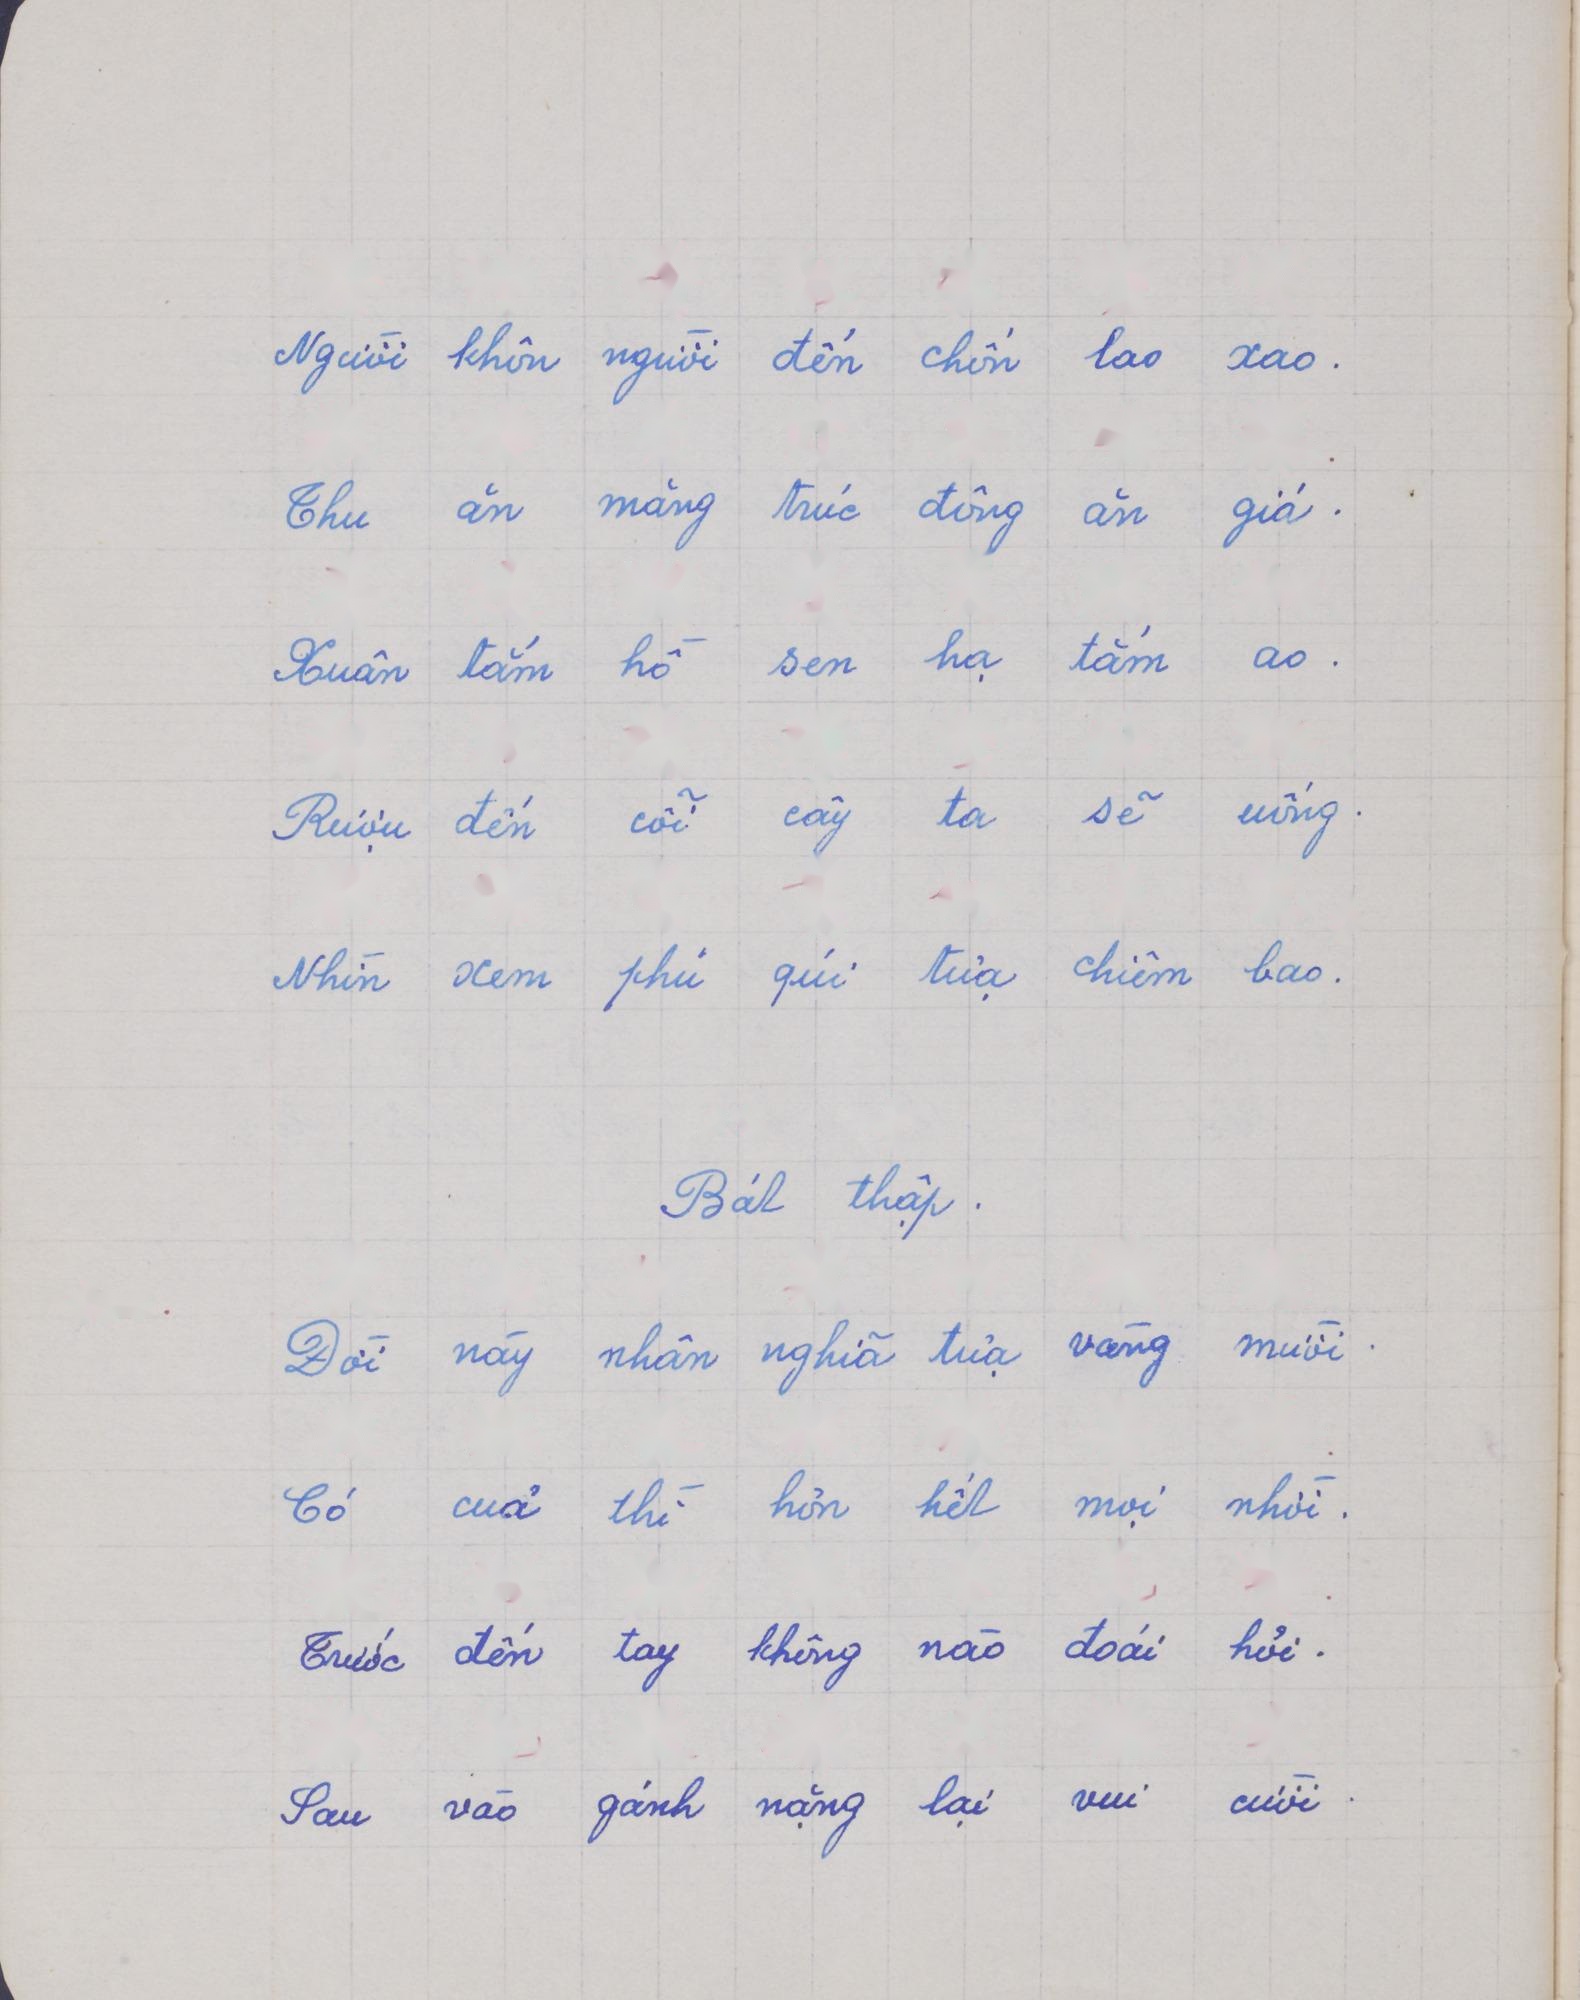 Người khôn người đến chốn lao xao.
Thu ăn măng trúc đông ăn giá.
Xuân tắm hồ sen hạ tắm ao.
Rượu đến cỗi cây ta sẽ uống.
Nhìn xem phú qúi tựa chiêm bao.
Bát thập.
Đời này nhân nghiã tựa vàng mười.
Có cuả thì hơn hết mọi nhời.
Trước đến tay không nào đoái hỏi.
Sau vào gánh nặng lại vui cười.